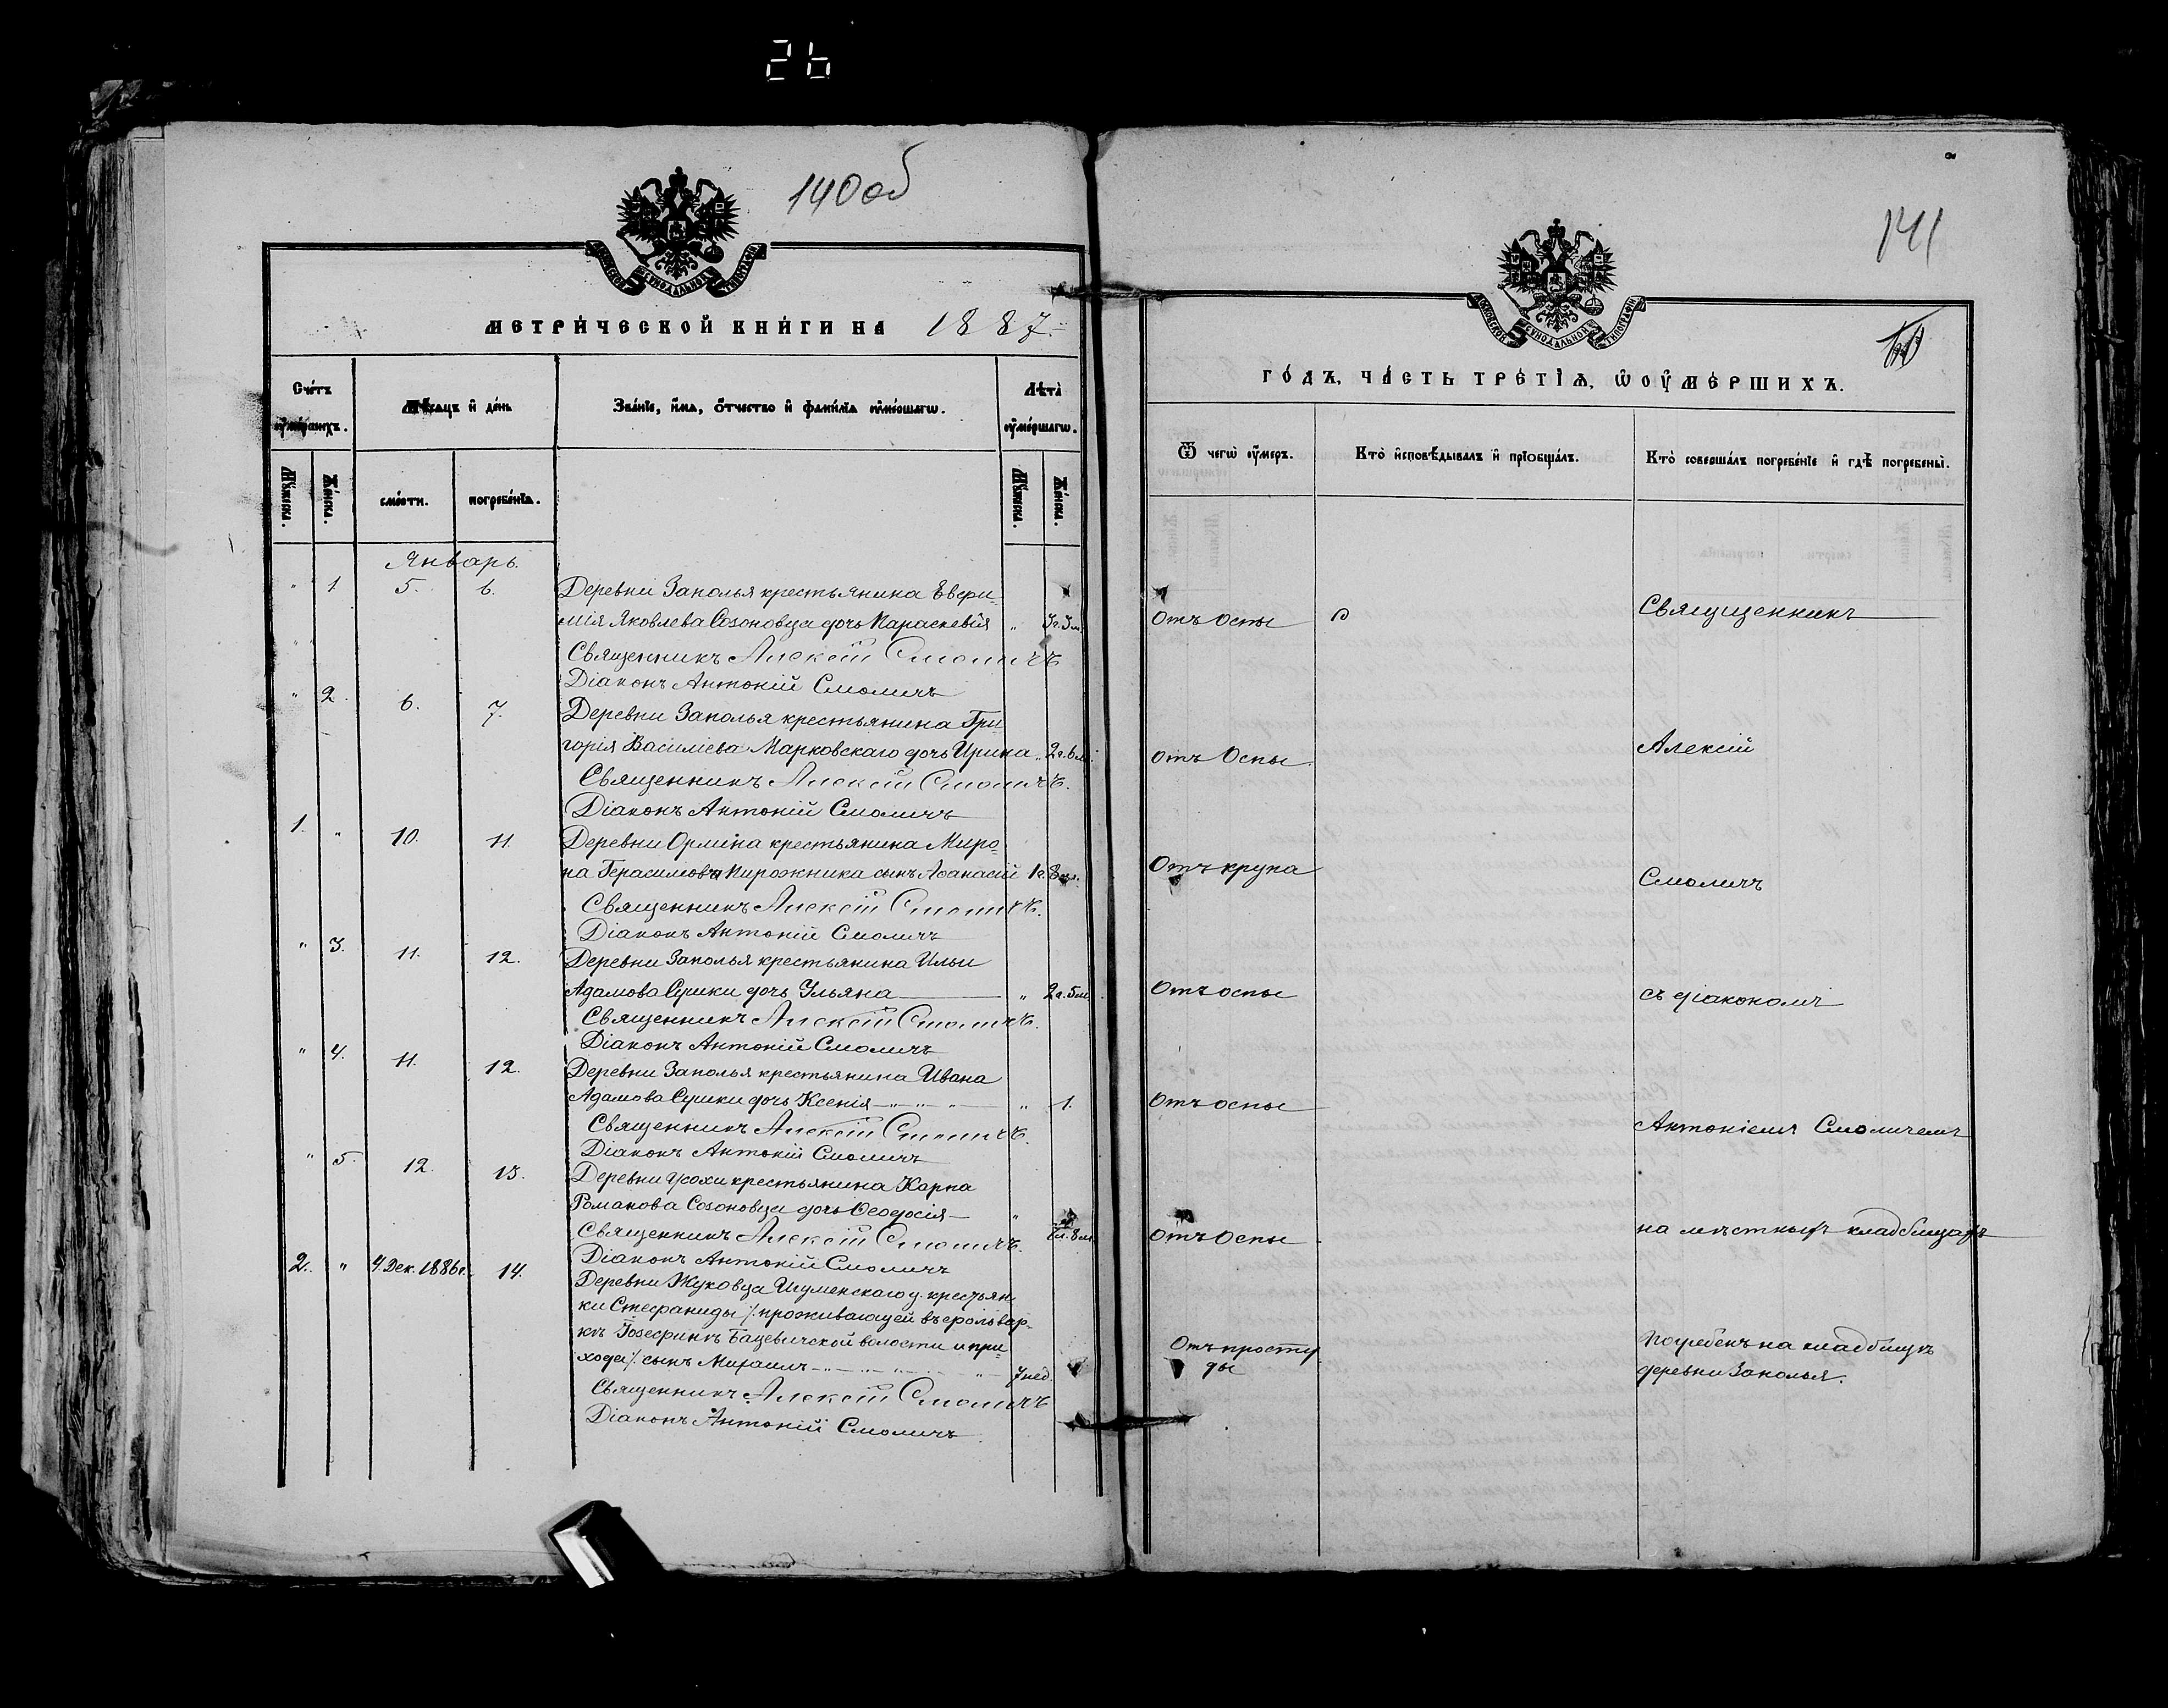 26
140об
МОСКОВСКОЙ СѴНОДАЛЬНОЙ ТИПОГРАФІИ
МЕТРИЧЕСКОЙ КНИГИ НА 1887.
Счетъ умершихъ.
Мѣсяцъ и день
Званіе, имя, отчество и фамилія умершаго.
Лѣта умершаго.
Мужеска.
Женска.
смерти.
погребенія.
Мужеска.
Женска.
Январь.
" 1 5. 6. Деревни Заполья крестьянина Евфи-
мія Яковлева Созоновца дочь Параскевія " 3г. 3м.
Священникъ Алексій Смоличъ
Діаконъ Антоній Смоличъ
" 2. 6. 7. Деревни Заполья крестьянина Гри
горія Василіева Марковскаго дочь Ирина " 2г. 6м.
Священникъ Алексій Смоличъ.
Діаконъ Антоній Смоличъ
1. " 10. 11. Деревни Орлина крестьянина Миро-
на Герасимова Пирожника сынъ Аѳанасій 1г. 8м.
Священникъ Алексій Смоличъ.
Діаконъ Антоній Смоличъ
" 3. 11. 12. Деревни Заполья крестьянина Ильи
Адамова Сушки дочь Ульяна " 2г. 5м.
Священникъ Алексій Смоличъ.
Діаконъ Антоній Смоличъ
" 4. 11. 12. Деревни Заполья крестьянина Ивана
Адамова Сушки дочь Ксенія " 1.
Священникъ Алексій Смоличъ.
Діаконъ Антоній Смоличъ
" 5. 12. 13. Деревни Усохи крестьянина Карпа
Романова Созоновца дочь Ѳеодосія "
Священникъ Алексій Смоличъ. 8м.
Діаконъ Антоній Смоличъ
2. " 4. Дек. 1886г. 14. Деревни Жуковца Игуменскаго у. крестьян
ки Стефаниды /:проживающей въ фольвар-
кѣ Іозефинѣ Бацевичской волости и при-
хода/: сынъ Михаилъ 7 нед.
Священникъ Алексій Смоличъ
Діаконъ Антоній Смоличъ
141
МОСКОВСКОЙ СѴНОДАЛЬНОЙ ТИПОГРАФІИ
ГОДЪ, ЧАСТЬ ТРЕТІЯ, Ѡ ОУМЕРШИХЪ.
Ѿ чегѡ умеръ.
Кто исповѣдывалъ и пріобщалъ.
Кто совершалъ погребеніе и гдѣ погребены.
Отъ оспы
Священникъ
отъ Оспы.
Алексій
Отъ крупа
Смоличъ
Отъ оспы
съ діакономъ
Отъ оспы
Антоніемъ Смоличемъ
отъ Оспы
на мѣстныхъ кладбищахъ
Отъ просту
ды
Погребенъ на кладбищѣ
деревни Заполья.